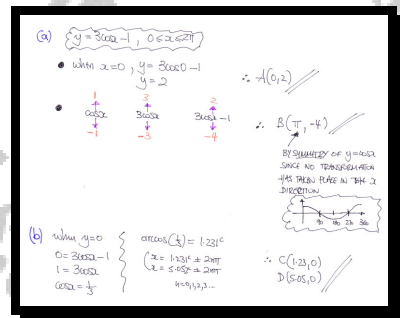 (a) y = 3cosx - 1 , 0 ≤ x ≤ 2π
• when x=0 , y = 3cos0 - 1
y = 2
∴ A(0,2)
1 3 2
• cosx 3cosx 3cosx - 1
-1 -3 -4
∴ B(π, -4)
BY SYMMETRY OF y=cosx
SINCE NO TRANSFORMATION
HAS TAKEN PLACE IN THE x
DIRECTION
90 180 270 360
(b) when y=0
0 = 3cosx - 1
1 = 3cosx
cosx = 1/3
arccos(1/3) = 1.231ᶜ
x = 1.231ᶜ ± 2nπ
x = 5.052ᶜ ± 2nπ
n=0,1,2,3...
∴ C(1.23,0)
D(5.05,0)